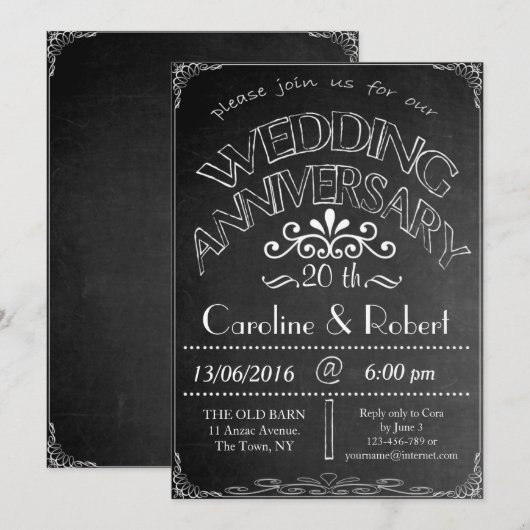 please join us for our
WEDDING
ANNIVERSARY
20 th
Caroline & Robert
13/06/2016 @ 6:00 pm
THE OLD BARN
11 Anzac Avenue.
The Town, NY
Reply only to Cora
by June 3
123-456-789 or
yourname@internet.com